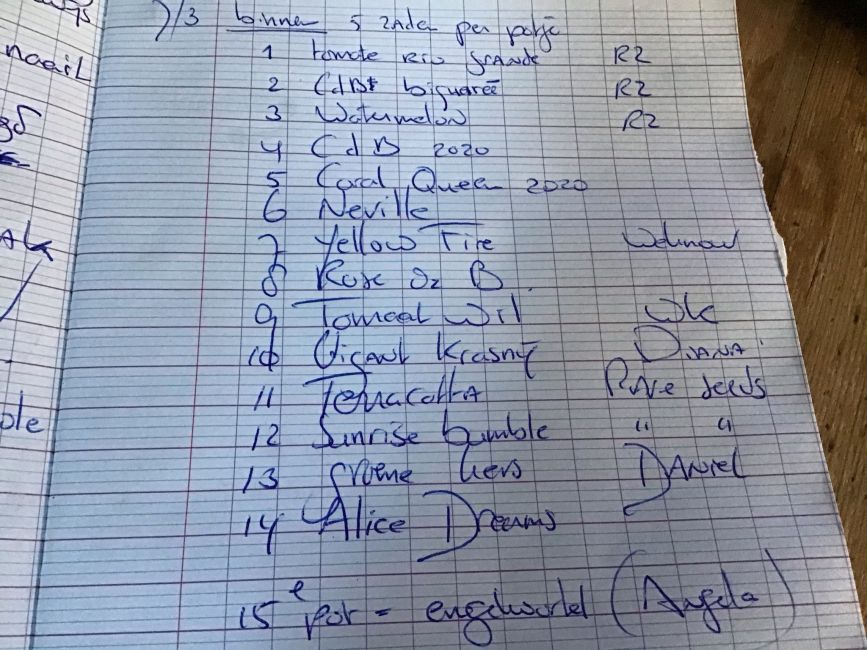 7/3 binnen 5 zaden per potje
1 tomate rio grande R2
2 CdB bigarreé R2
3 Watermelon R2
4 CdB 2020
5 Coral Queen 2020
6 Neville
7 Yellow Fire
8 Rose de B.
9 Tomaat Wil Wk
10 Gigant Krasny DiANA
11 TerracottA RAre Seeds
12 Sunrise bumble " "
13 Groene kers DANiel
14 Alice Dreams
15e pot = engelwortel (Angela)
naail
ple